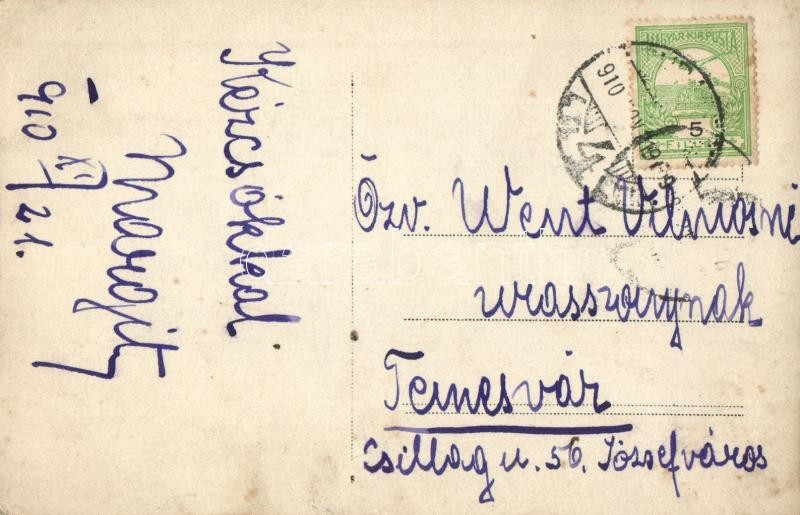 Kézcsókkal
Margit
910 XI/21.
MAGYAR KIR. POSTA
5
FILLÉR
910 NOV
Özv. Went Vilmosné
urasszonynak
Temesvár
Csillag u. 56. Józsefváros
darabanth